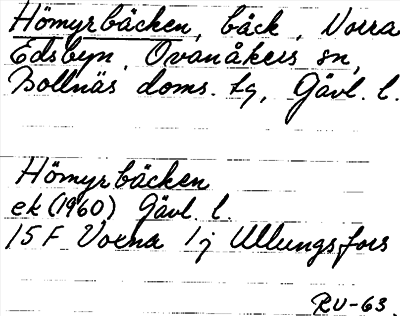 Hömyrbäcken, bäck, Norra
Edsbyn, Ovanåkers sn,
Bollnäs doms. tg, Gävl. l.
Hömyrbäcken
ek (1960) Gävl. l.
15 F Voxna 1 j Ullungsfors
RU-63.